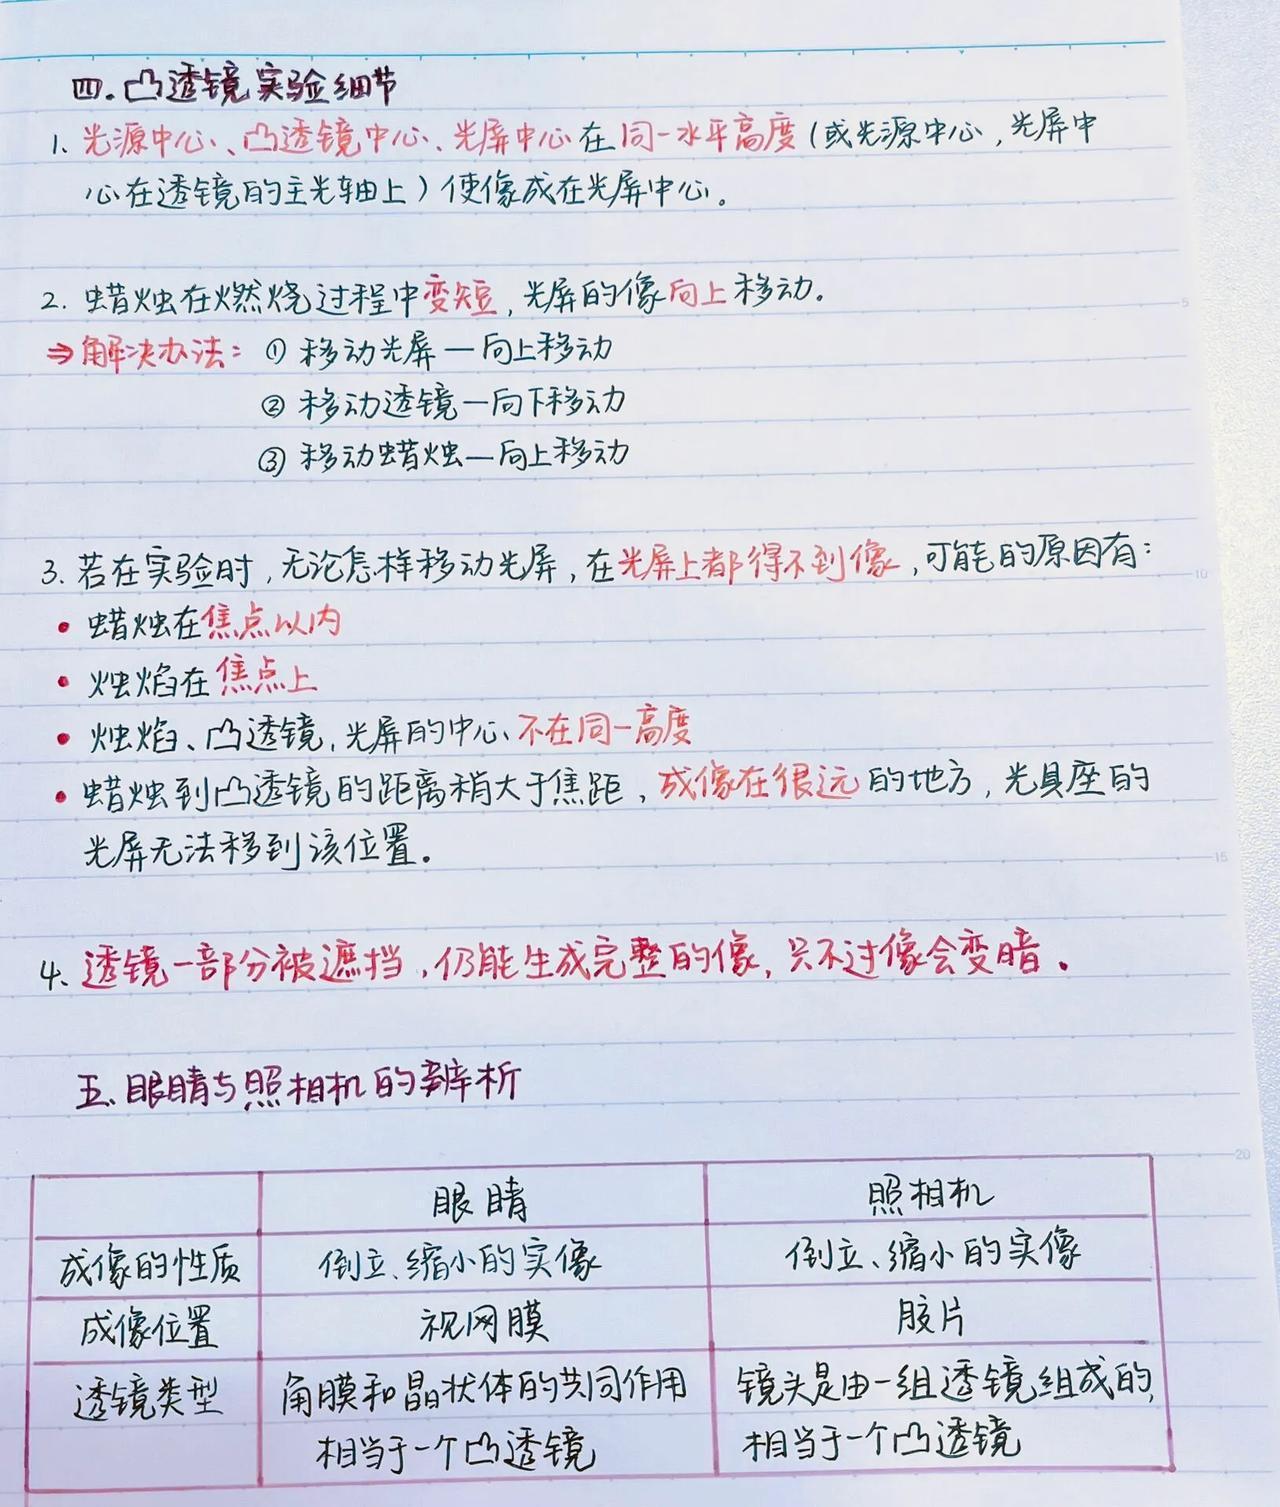 四.凸透镜实验细节
1、光源中心、凸透镜中心、光屏中心在同一水平高度(或光源中心,光屏中
心在透镜的主光轴上)使像成在光屏中心。
2. 蜡烛在燃烧过程中变短,光屏的像向上移动。
⇒解决办法:① 移动光屏—向上移动
② 移动透镜—向下移动
③ 移动蜡烛—向上移动
3. 若在实验时,无论怎样移动光屏,在光屏上都得不到像,可能的原因有:
• 蜡烛在焦点以内
• 烛焰在焦点上
• 烛焰、凸透镜,光屏的中心不在同一高度
• 蜡烛到凸透镜的距离稍大于焦距,成像在很远的地方,光具座的
光屏无法移到该位置。
4、透镜一部分被遮挡,仍能生成完整的像,只不过像会变暗。
五.眼睛与照相机的辨析
眼睛 照相机
成像的性质 倒立、缩小的实像 倒立、缩小的实像
成像位置 视网膜 胶片
透镜类型 角膜和晶状体的共同作用 镜头是由一组透镜组成的,
相当于一个凸透镜 相当于一个凸透镜
5
10
15
20